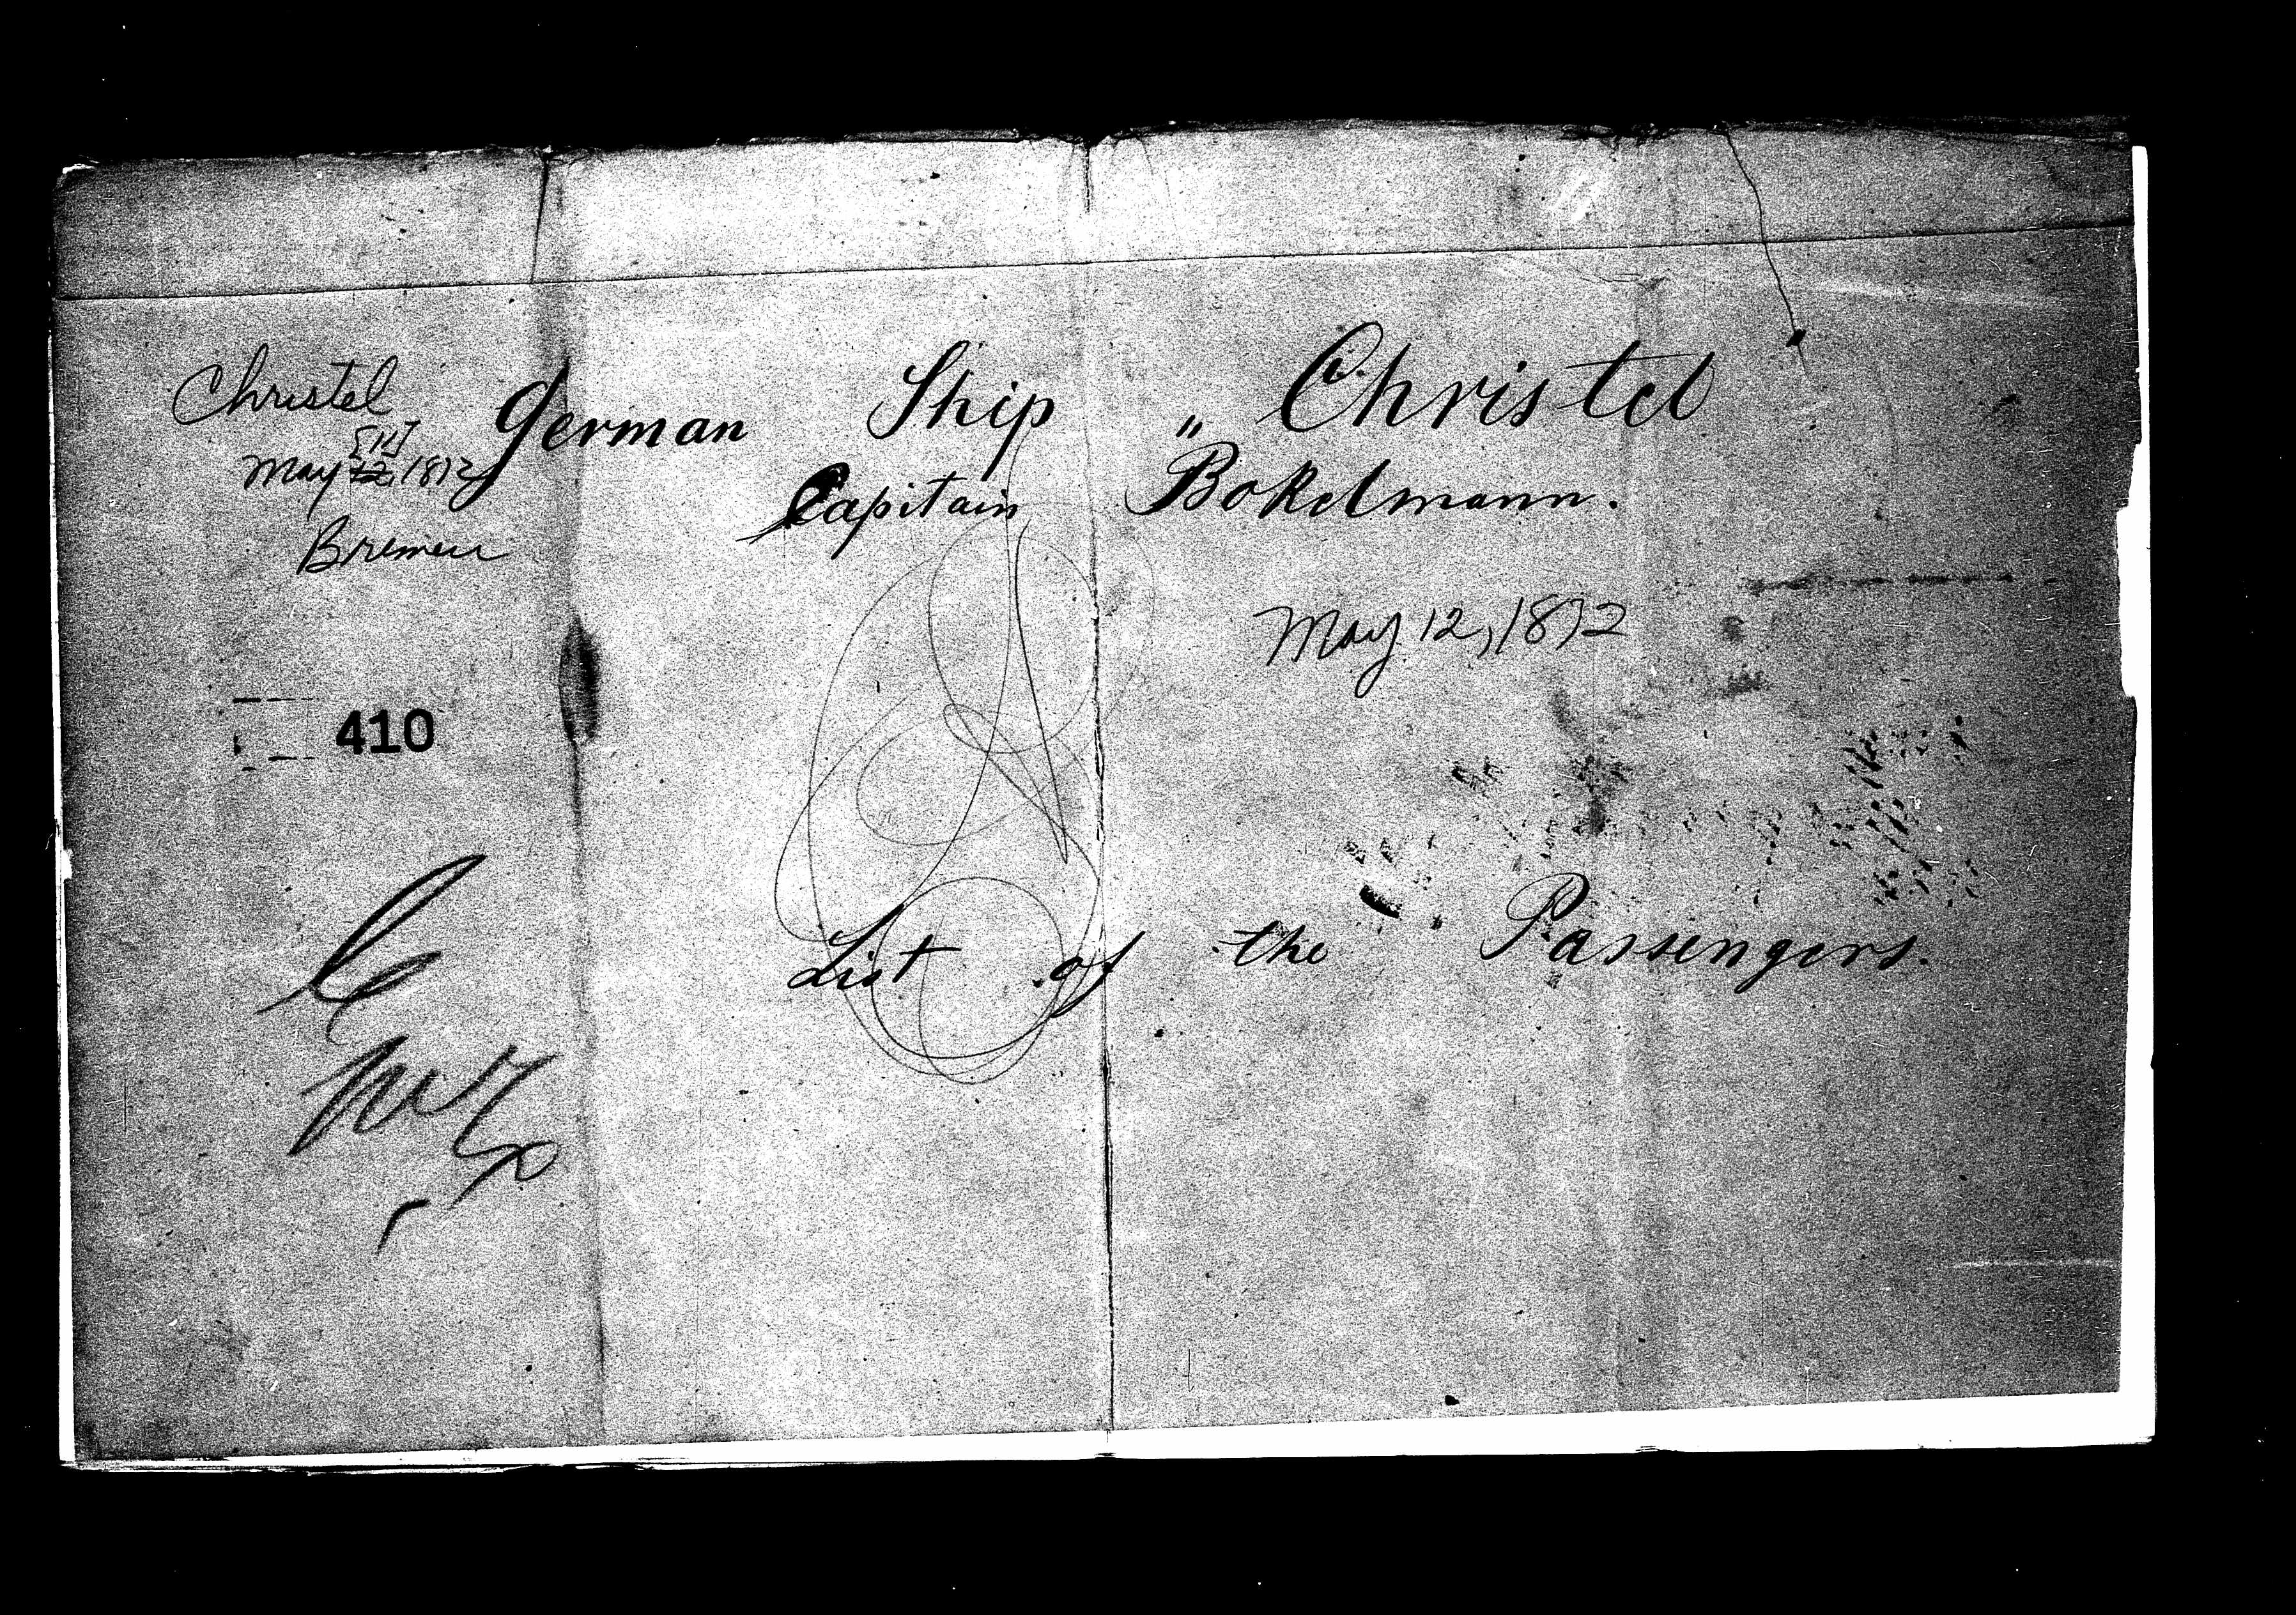 Christel
[11]
May 12, 1872
Bremen
German Ship „Christel"
Capitain Bokelmann.
May 12, 1872
410
List of the Passengers.